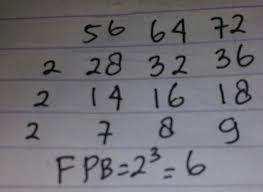 56 64 72
2 28 32 36
2 14 16 18
2 7 8 9
FPB=2³=6